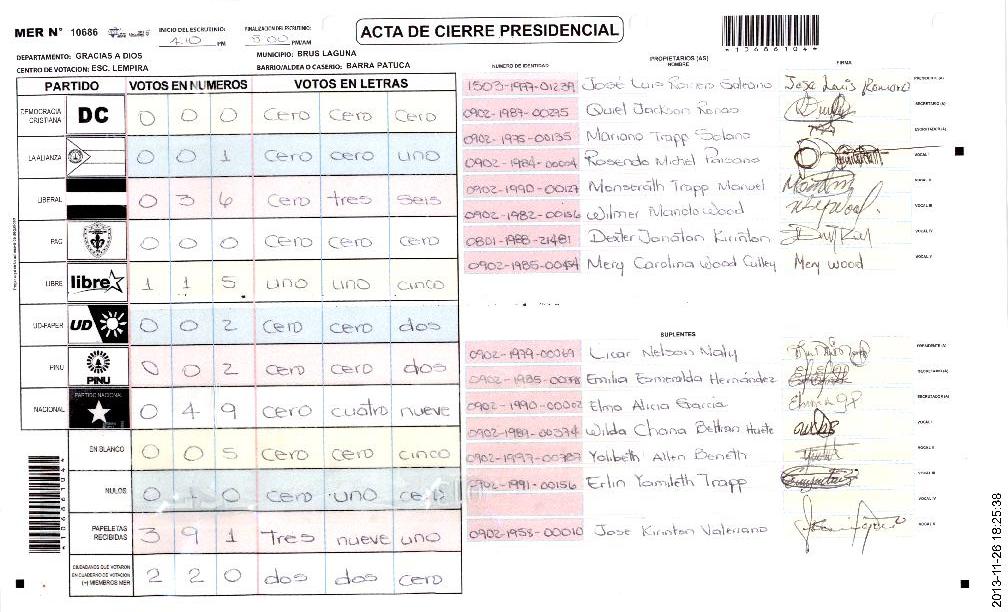 MER N° 10686
INICIO DEL ESCRUTINIO: 4:10 PM
FINALIZACION DEL ESCRUTINIO: 5:00 PM/AM
ACTA DE CIERRE PRESIDENCIAL
*10686104*
DEPARTAMENTO: GRACIAS A DIOS
MUNICIPIO: BRUS LAGUNA
CENTRO DE VOTACION: ESC. LEMPIRA
BARRIO/ALDEA O CASERIO: BARRA PATUCA
PARTIDO VOTOS EN NUMEROS VOTOS EN LETRAS
DEMOCRACIA CRISTIANA DC 0 0 0 cero cero cero
LA ALIANZA 0 0 1 cero cero uno
LIBERAL 0 3 6 cero tres seis
PAC 0 0 0 cero cero cero
LIBRE libre 1 1 5 uno uno cinco
UD-FAPER UD 0 0 2 cero cero dos
PINU PINU 0 0 2 cero cero dos
NACIONAL PARTIDO NACIONAL 0 4 9 cero cuatro nueve
EN BLANCO 0 0 5 cero cero cinco
NULOS 0 1 0 cero uno cero
PAPELETAS RECIBIDAS 3 9 1 Tres nueve uno
CIUDADANOS QUE VOTARON EN CUADERNO DE VOTACION (+) MIEMBROS MER 2 2 0 dos dos cero
*10686104*
NUMERO DE IDENTIDAD PROPIETARIOS (AS) NOMBRE FIRMA
1503-1977-01239 José Luis Romero Solano Jose Luis Romero PRESIDENTE (A)
0902-1987-00275 Quiel Jackson SECRETARIO (A)
0902-1975-00135 Mariano Trapp Solano ESCRUTADOR (A)
0902-1984-00004 Rosendo Michel VOCAL I
0902-1990-00127 Monserath Trapp Manuel VOCAL II
0902-1982-00156 Wilmer Manolo Wood VOCAL III
0801-1988-21481 Dexter Jonatan Kirinton VOCAL IV
0902-1985-00454 Mery Carolina Wood Culley Mery Wood VOCAL V
SUPLENTES
0902-1979-00069 Licar Nelson Naly PRESIDENTE (A)
0902-1985- Emilia Esmeralda Hernández SECRETARIO (A)
0902-1990-00002 Elmo Alicia Garcia ESCRUTADOR (A)
0902-1989-00374 Wilda Chona Beltran Huete VOCAL I
0902-1997- Yolibeth Allen Beneth VOCAL II
0902-1991-00156 Erlin Yamileth Trapp VOCAL III
VOCAL IV
0902-1958-00010 José Kirinton Valeriano VOCAL V
2013-11-26 18:25:38